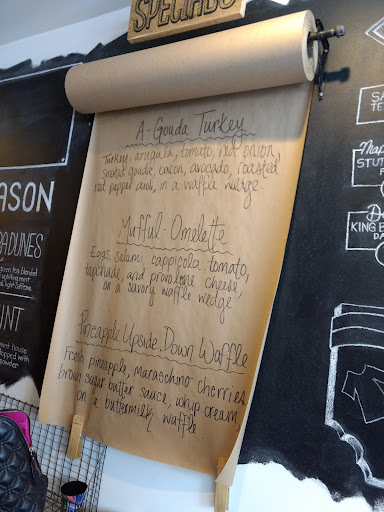 SPECIALS
A-Gouda Turkey
Turkey, arugula, tomato, red onion,
smoked gouda, bacon, avocado, roasted
red pepper aioli, in a waffle wedge.
Mufful-Omelette
Eggs, salami, cappicola, tomato,
tapenade, and provolone cheese,
on a savory waffle wedge
Pineapple Upside Down Waffle
Fresh pineapple, maraschino cherries
brown sugar butter sauce, whip cream
on a buttermilk waffle
ASON
DUNES
INT